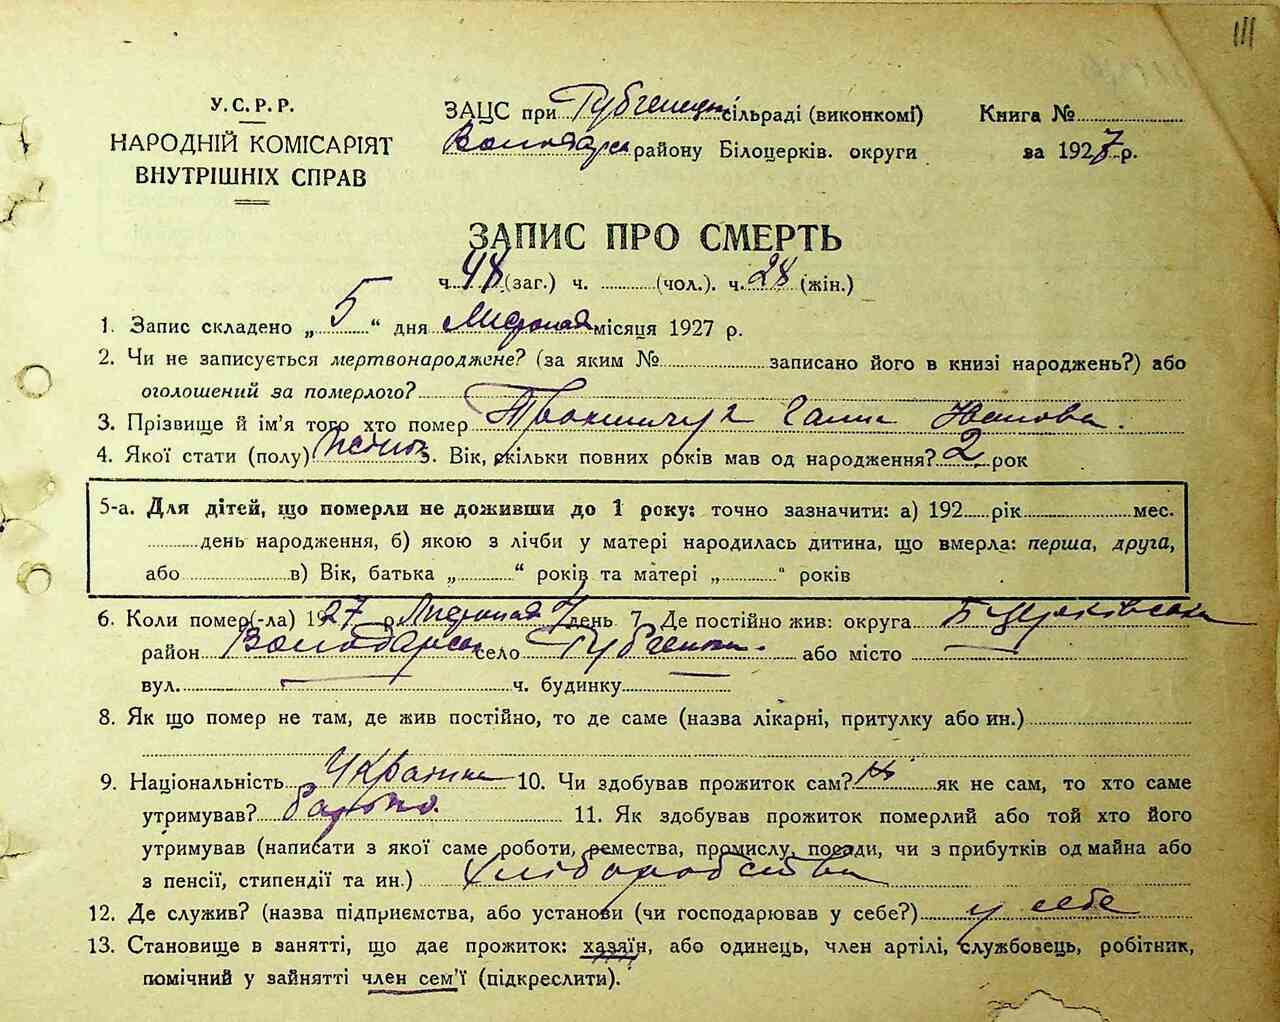 III
У.С.Р.Р.
НАРОДНІЙ КОМІСАРІЯТ
ВНУТРІШНІХ СПРАВ
ЗАЦС при сільраді (виконкомі)
Володарс району Білоцерків. округи
Книга №
за 1927 р.
ЗАПИС ПРО СМЕРТЬ
ч. 48 (заг.) ч. (чол.). ч. 28 (жін.)
1. Запис складено „ 5 “ дня Листопад місяця 1927 р.
2. Чи не записується мертвонароджене? (за яким № записано його в книзі народжень?) або
оголошений за померлого?
3. Прізвище й ім'я того хто помер Ганна Іванова.
4. Якої стати (полу) 5. Вік, скільки повних років мав од народження? 2 рок
5-а. Для дітей, що померли не доживши до 1 року: точно зазначити: а) 192 рік мес.
день народження, б) якою з лічби у матері народилась дитина, що вмерла: перша, друга,
або в) Вік, батька „ “ років та матері „ “ років
6. Коли помер(-ла) 1927 р. Листопад день 7. Де постійно жив: округа Б Церківська
район Володарськ село або місто
вул. ч. будинку
8. Як що помер не там, де жив постійно, то де саме (назва лікарні, притулку або ин.)
9. Національність 10. Чи здобував прожиток сам? Ні як не сам, то хто саме
утримував? батько. 11. Як здобував прожиток померлий або той хто його
утримував (написати з якої саме роботи, ремества, промислу, посади, чи з прибутків од майна або
з пенсії, стипендії та ин.) Хліборобства
12. Де служив? (назва підприємства, або установи (чи господарював у себе?) у себе
13. Становище в занятті, що дає прожиток: хазяїн, або одинець, член артілі, службовець, робітник,
помічний у зайнятті член сем'ї (підкреслити).